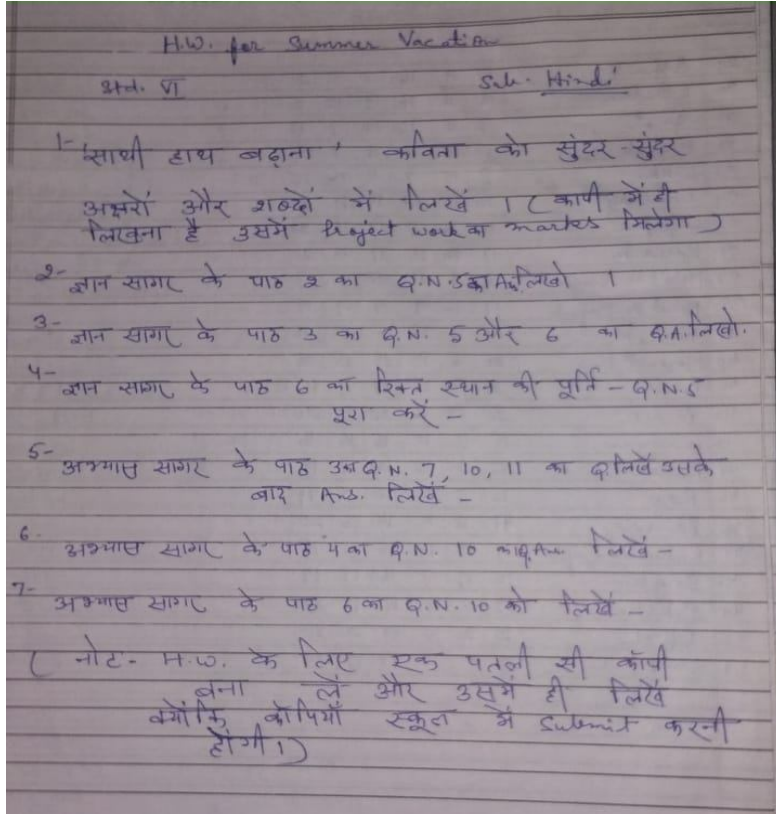 H.W. for Summer Vacation
Std. VI Sub. Hindi
1- 'साथी हाथ बढ़ाना' कविता को सुंदर-सुंदर
अक्षरों और शब्दों में लिखें । ( कापी में ही
लिखना है उसमें Project work का marks मिलेगा )
2- ज्ञान सागर के पाठ 2 का Q.N. 5 का Ans लिखो ।
3- ज्ञान सागर के पाठ 3 का Q.N. 5 और 6 का Q.A. लिखो.
4- ज्ञान सागर के पाठ 6 का रिक्त स्थान की पूर्ति - Q.N.5
पूरा करें -
5- अभ्यास सागर के पाठ 3 का Q.N. 7, 10, 11 का Q लिखें उसके
बाद Ans. लिखें -
6- अभ्यास सागर के पाठ 4 का Q.N. 10 का Q. Ans लिखें -
7- अभ्यास सागर के पाठ 6 का Q.N. 10 को लिखें -
( नोट - H.W. के लिए एक पतली सी कॉपी
बना लें और उसमें ही लिखें
क्योंकि कॉपियाँ स्कूल में Submit करनी
होंगी ।)